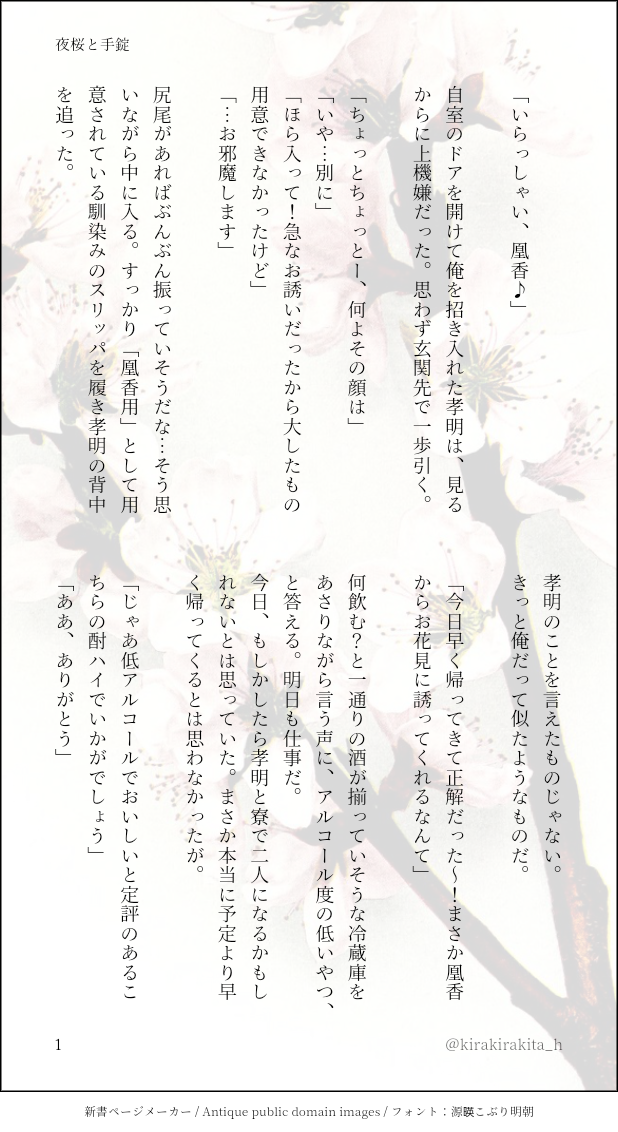 夜桜と手錠
「いらっしゃい、凰香♪」
自室のドアを開けて俺を招き入れた孝明は、見る
からに上機嫌だった。思わず玄関先で一歩引く。
「ちょっとちょっとー、何よその顔は」
「いや…別に」
「ほら入って！急なお誘いだったから大したもの
用意できなかったけど」
「…お邪魔します」
尻尾があればぶんぶん振っていそうだな…そう思
いながら中に入る。すっかり「凰香用」として用
意されている馴染みのスリッパを履き孝明の背中
を追った。
孝明のことを言えたものじゃない。
きっと俺だって似たようなものだ。
「今日早く帰ってきて正解だった〜！まさか凰香
からお花見に誘ってくれるなんて」
何飲む？と一通りの酒が揃っていそうな冷蔵庫を
あさりながら言う声に、アルコール度の低いやつ、
と答える。明日も仕事だ。
今日、もしかしたら孝明と寮で二人になるかもし
れないとは思っていた。まさか本当に予定より早
く帰ってくるとは思わなかったが。
「じゃあ低アルコールでおいしいと定評のあるこ
ちらの酎ハイでいかがでしょう」
「ああ、ありがとう」
1
@kirakirakita_h
新書ページメーカー / Antique public domain images / フォント：源暎こぶり明朝